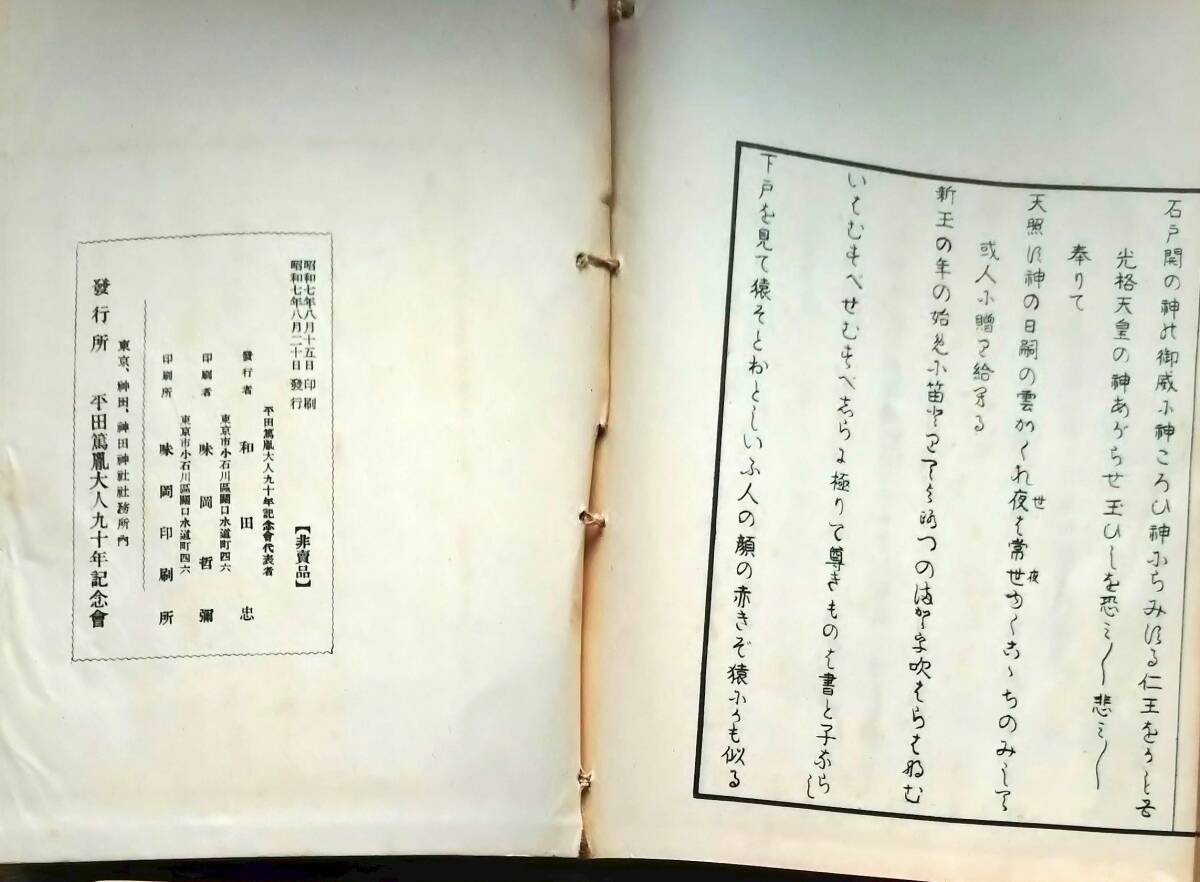 石戸開の神の御威に神ころひ神に
光格天皇の神あがらせ玉ひしを恐み〱悲み〱
奉りて
天照す神の日嗣の雲がくれ夜は常世 こゝちのみして
世 夜
或人に贈り給
新玉の年の始めに笛とりて 吹はらはなむ
いはむすべせむすべしらに極りて尊きものは書と子ならし
下戸を見て猿そとおとしいふ人の顔の赤きぞ猿にかも似る
昭和七年八月十五日印刷
昭和七年八月二十日發行
【非賣品】
平田篤胤大人九十年記念會代表者
發行者 和田忠
東京市小石川區關口水道町四六
印刷者 味岡哲彌
東京市小石川區關口水道町四六
印刷所 味岡印刷所
東京、神田、神田神社社務所內
發行所 平田篤胤大人九十年記念會